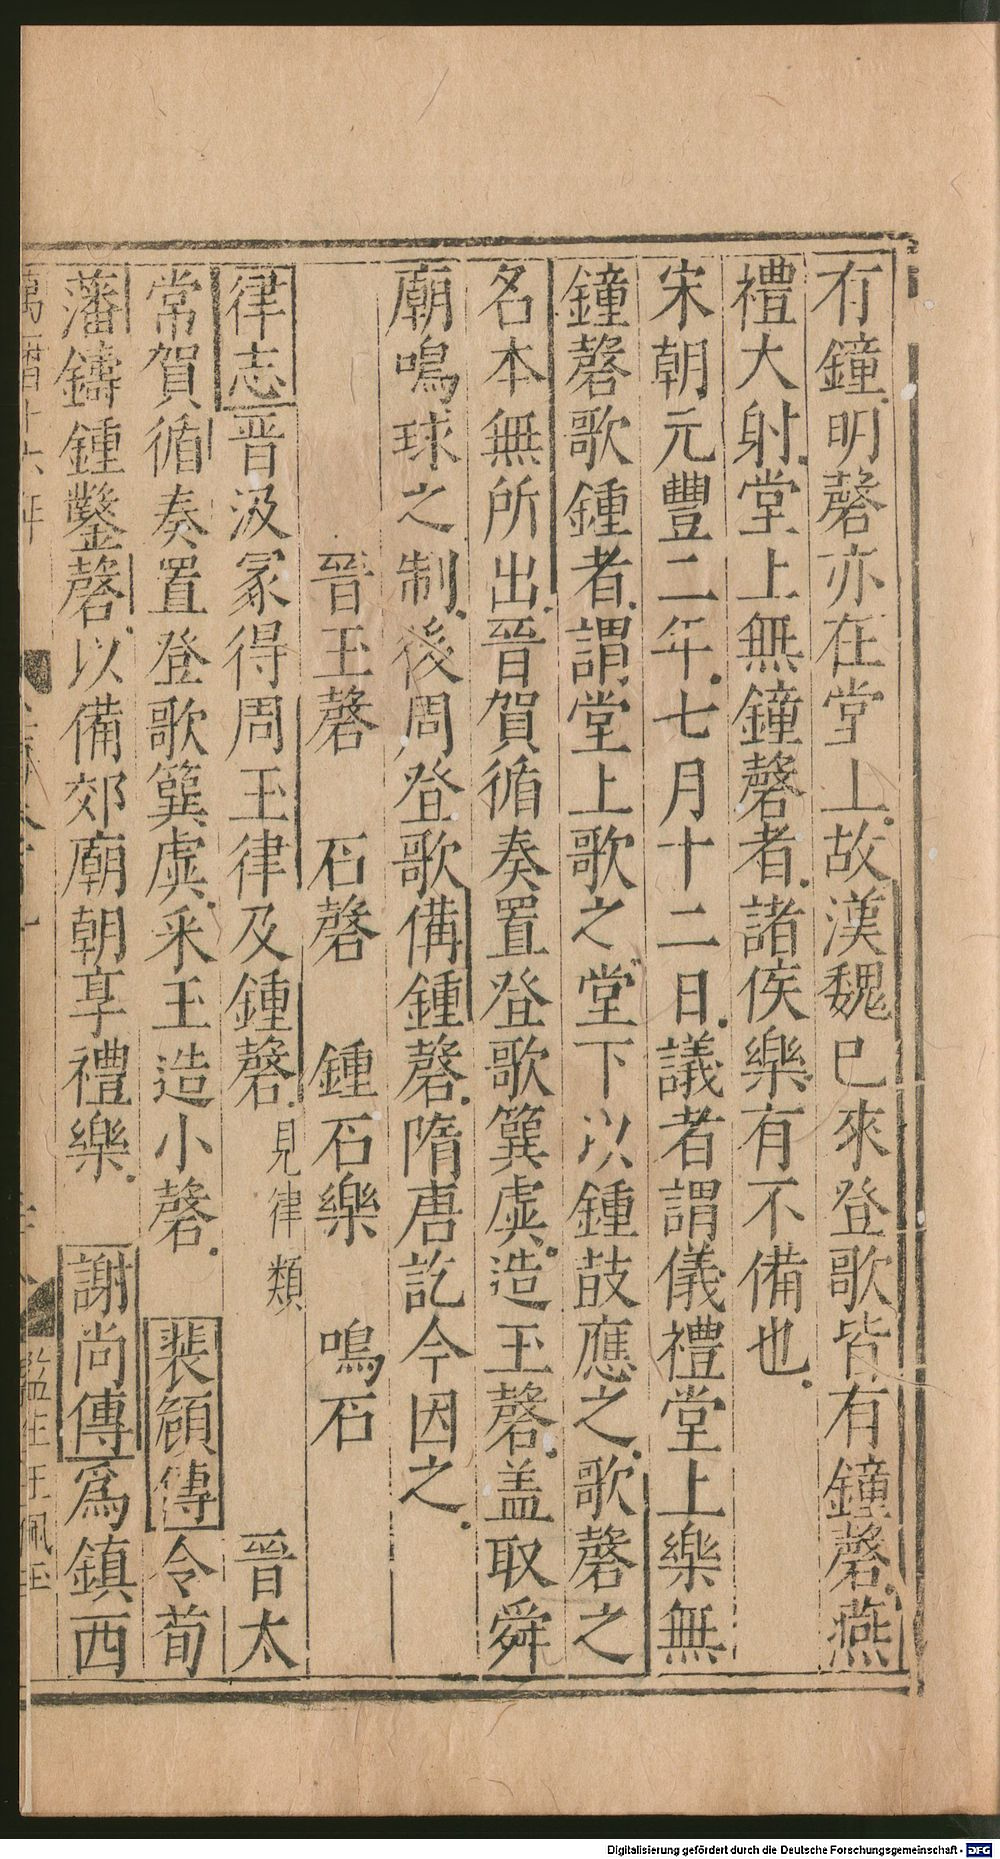 有鐘明磬亦在堂上故漢魏已來登歌皆有鐘磬燕
禮大射堂上無鐘磬者諸侯樂有不備也
宋朝元豐二年七月十二日議者謂儀禮堂上樂無
鐘磬歌鍾者謂堂上歌之堂下以鍾鼓應之歌磬之
名本無所出晉賀循奏置登歌簨虡造玉磬盖取舜
廟鳴球之制後周登歌備鍾磬隋唐訖今因之
晉玉磬 石磬 鍾石樂 鳴石
律志晋汲冡得周玉律及鍾磬見律類 晉太
常賀循奏置登歌簨虡采玉造小磬 裴頠傳令荀
藩鑄鍾鑿磬以備郊廟朝享禮樂 謝尚傳爲鎮西